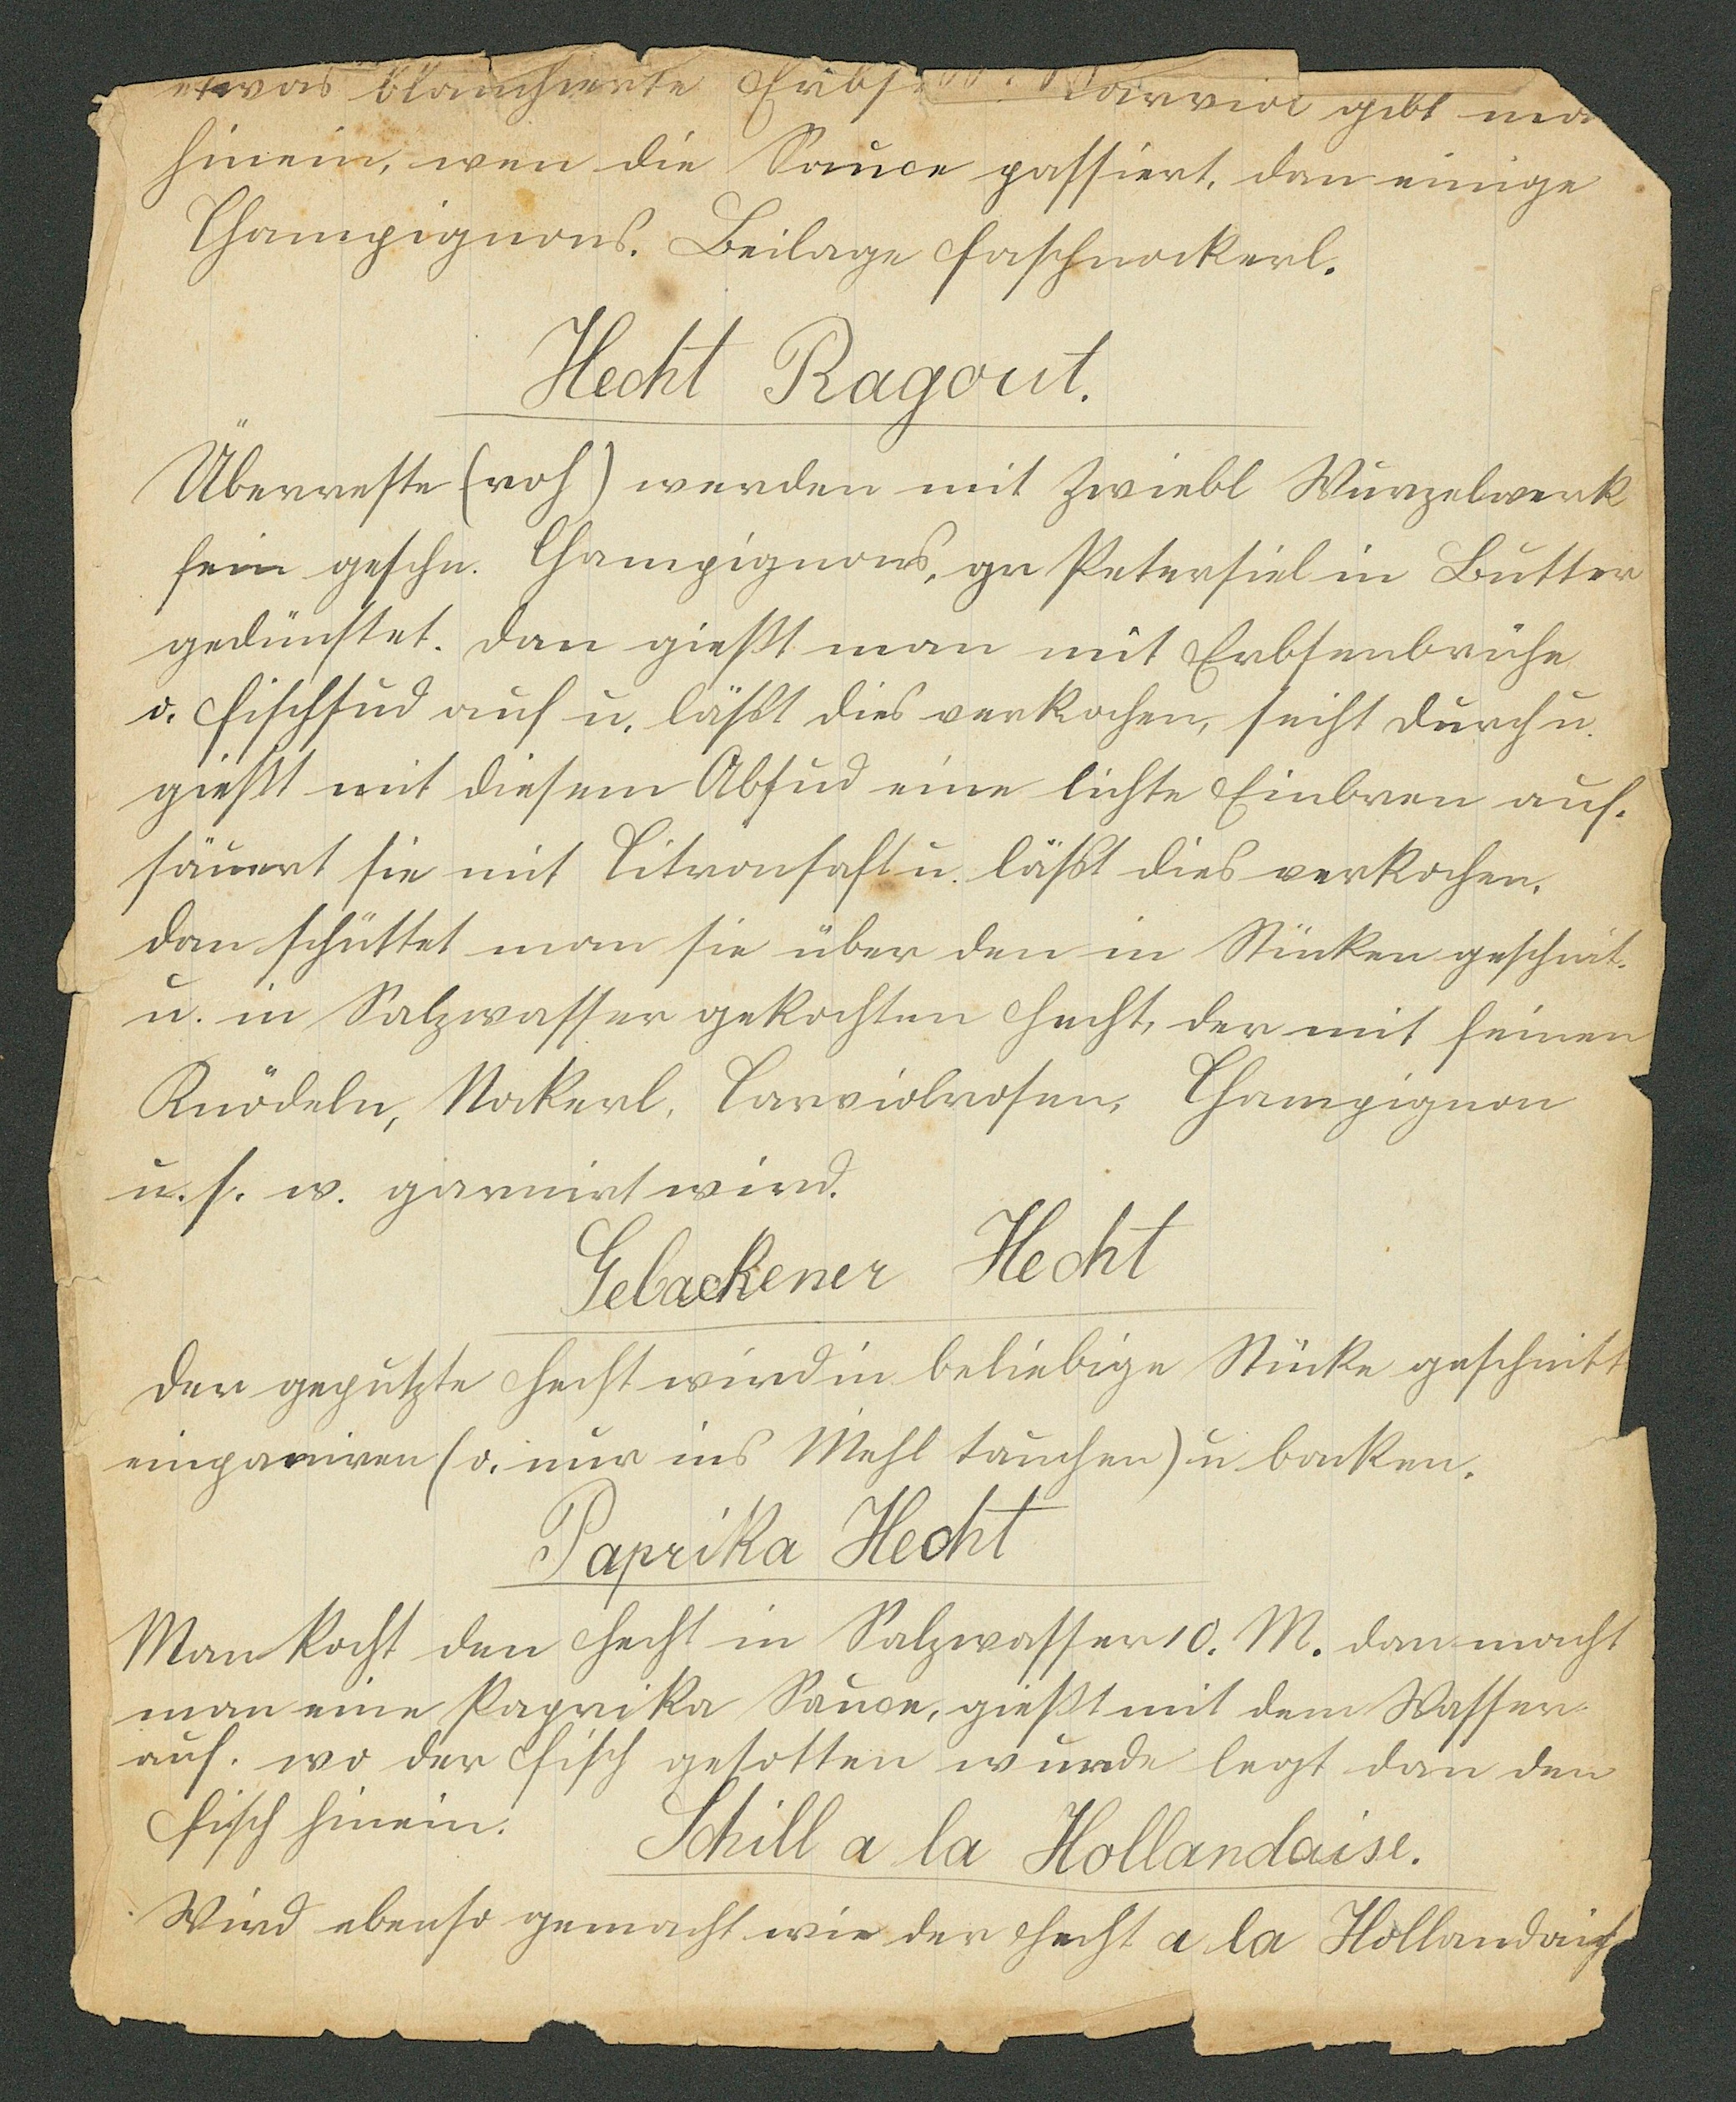 etwas blanchierte Erbsen Carviol gibt ma
hinein, wen die Sauce passiert, dan einige
Champignons. Beilage Faschnockerl.
Hecht Ragout.
Überreste (roh) werden mit Zwiebl Wurzelwerk
fein geschn. Champignons, gr Petersiel in Butter
gedünstet. dan gießt man mit Erbsenbrühe
o. Fischsud auf u. läßt dies verkochen, seiht durch u.
gießt mit diesem Absud eine lichte Einbren auf.
säuert sie mit Citronsaft u. läßt dies verkochen.
dan schüttet man sie über den in Stücken geschnit.
u. in Salzwasser gekochten Hecht, der mit feinen
Knödeln, Nokerl, Carviolrosen, Champignon
u. s. w. garnirt wird.
Gebackener Hecht
der geputzte Hecht wird in beliebige Stücke geschnitt
einpaniren (o. nur ins Mehl tauchen) u backen.
Paprika Hecht
Man kocht den Hecht in Salzwasser 10. M. dan macht
man eine Paprika Sauce, gießt mit dem Wasser
auf. wo der Fisch gesotten wurde legt dan den
Fisch hinein.
Schill a la Hollandaise.
Wird ebenso gemacht wie der Hecht a la Hollandais